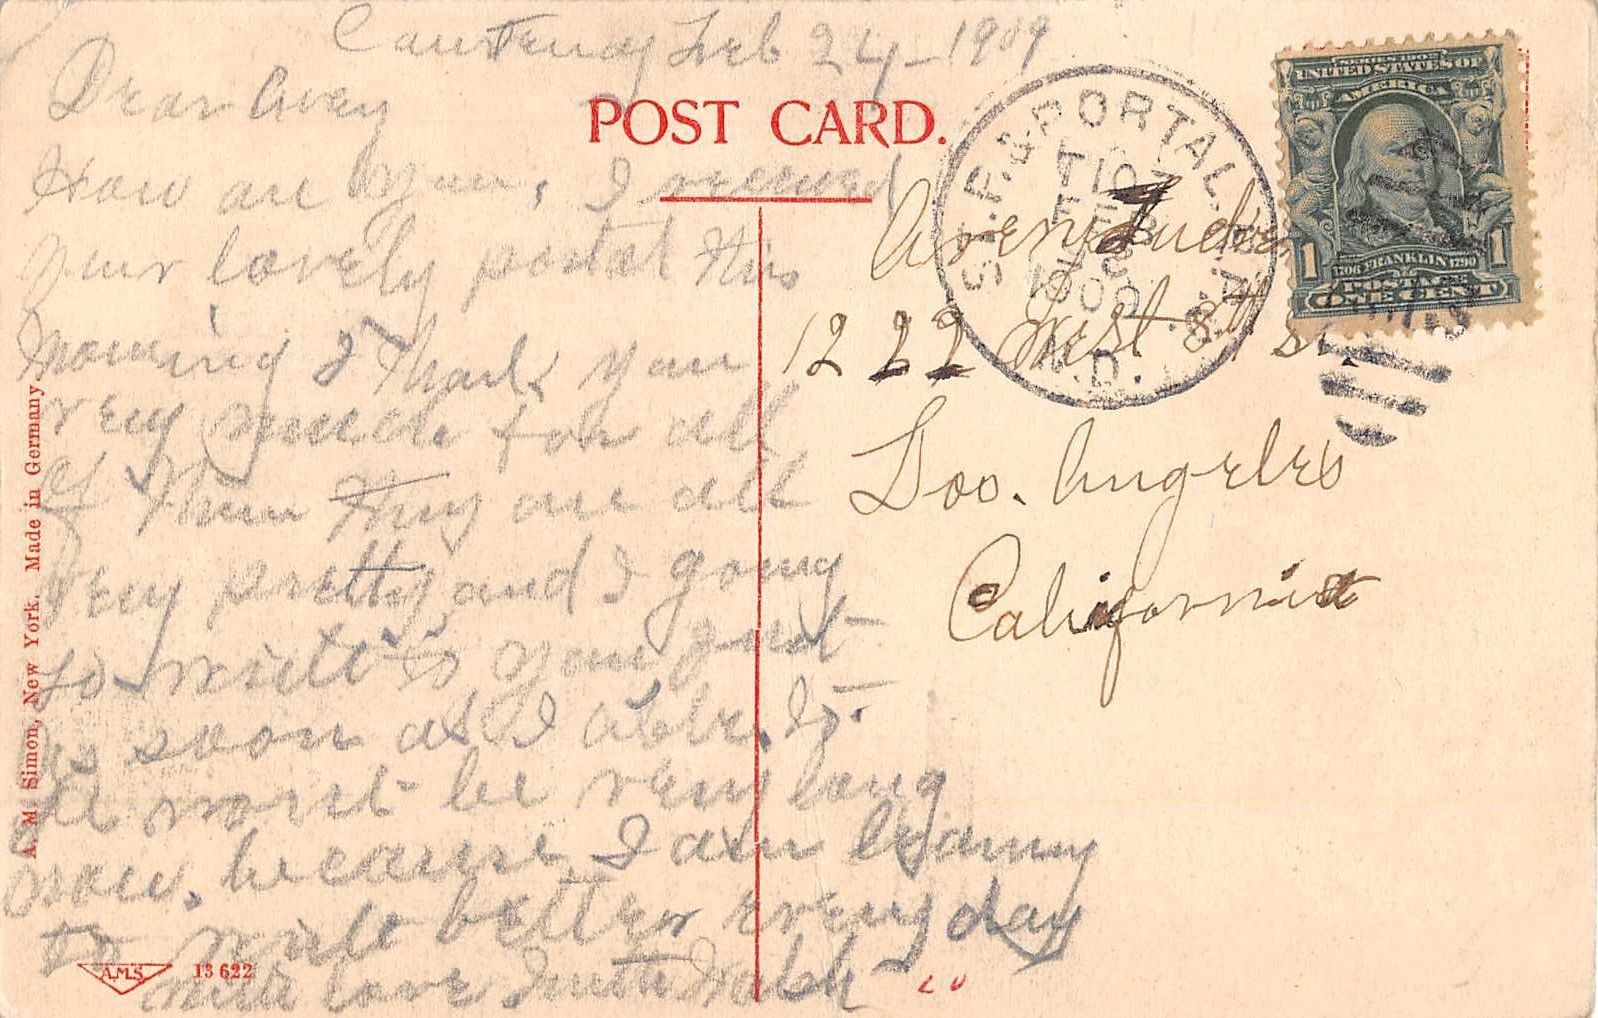 Courtenay Feb 24 - 1909
Dear Avery
How are you, I received
your lovely postal this
Morning I Thank you
very much for all
of Them They are all
Very pretty and I going
to write to you just
as soon as I able. To.
it wont be very long
now. because I am learning
to write better every day
with love Walsh
POST CARD.
ST. P. & PORTAL. R.P.O.
N.D.
SERIES 1902
UNITED STATES OF
AMERICA
1 1
1706 FRANKLIN 1790
POSTAGE
ONE CENT
Avery
1222 West 8th St
Los. Angeles
California
A. M. Simon, New York. Made in Germany
A.M.S. 13 622